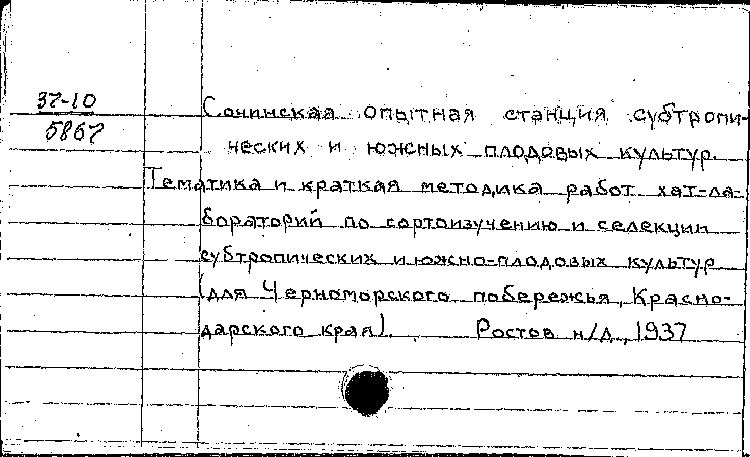 37-10
5867
Сочинская опытная станция субтропи-
ческих и южных плодовых культур.
Тематика и краткая методика работ хат-ла-
бораторий по сортоизучению и селекции
субтропических и южно-плодовых культур
(для Черноморского побережья, Красно-
дарского края). Ростов н/Д, 1937